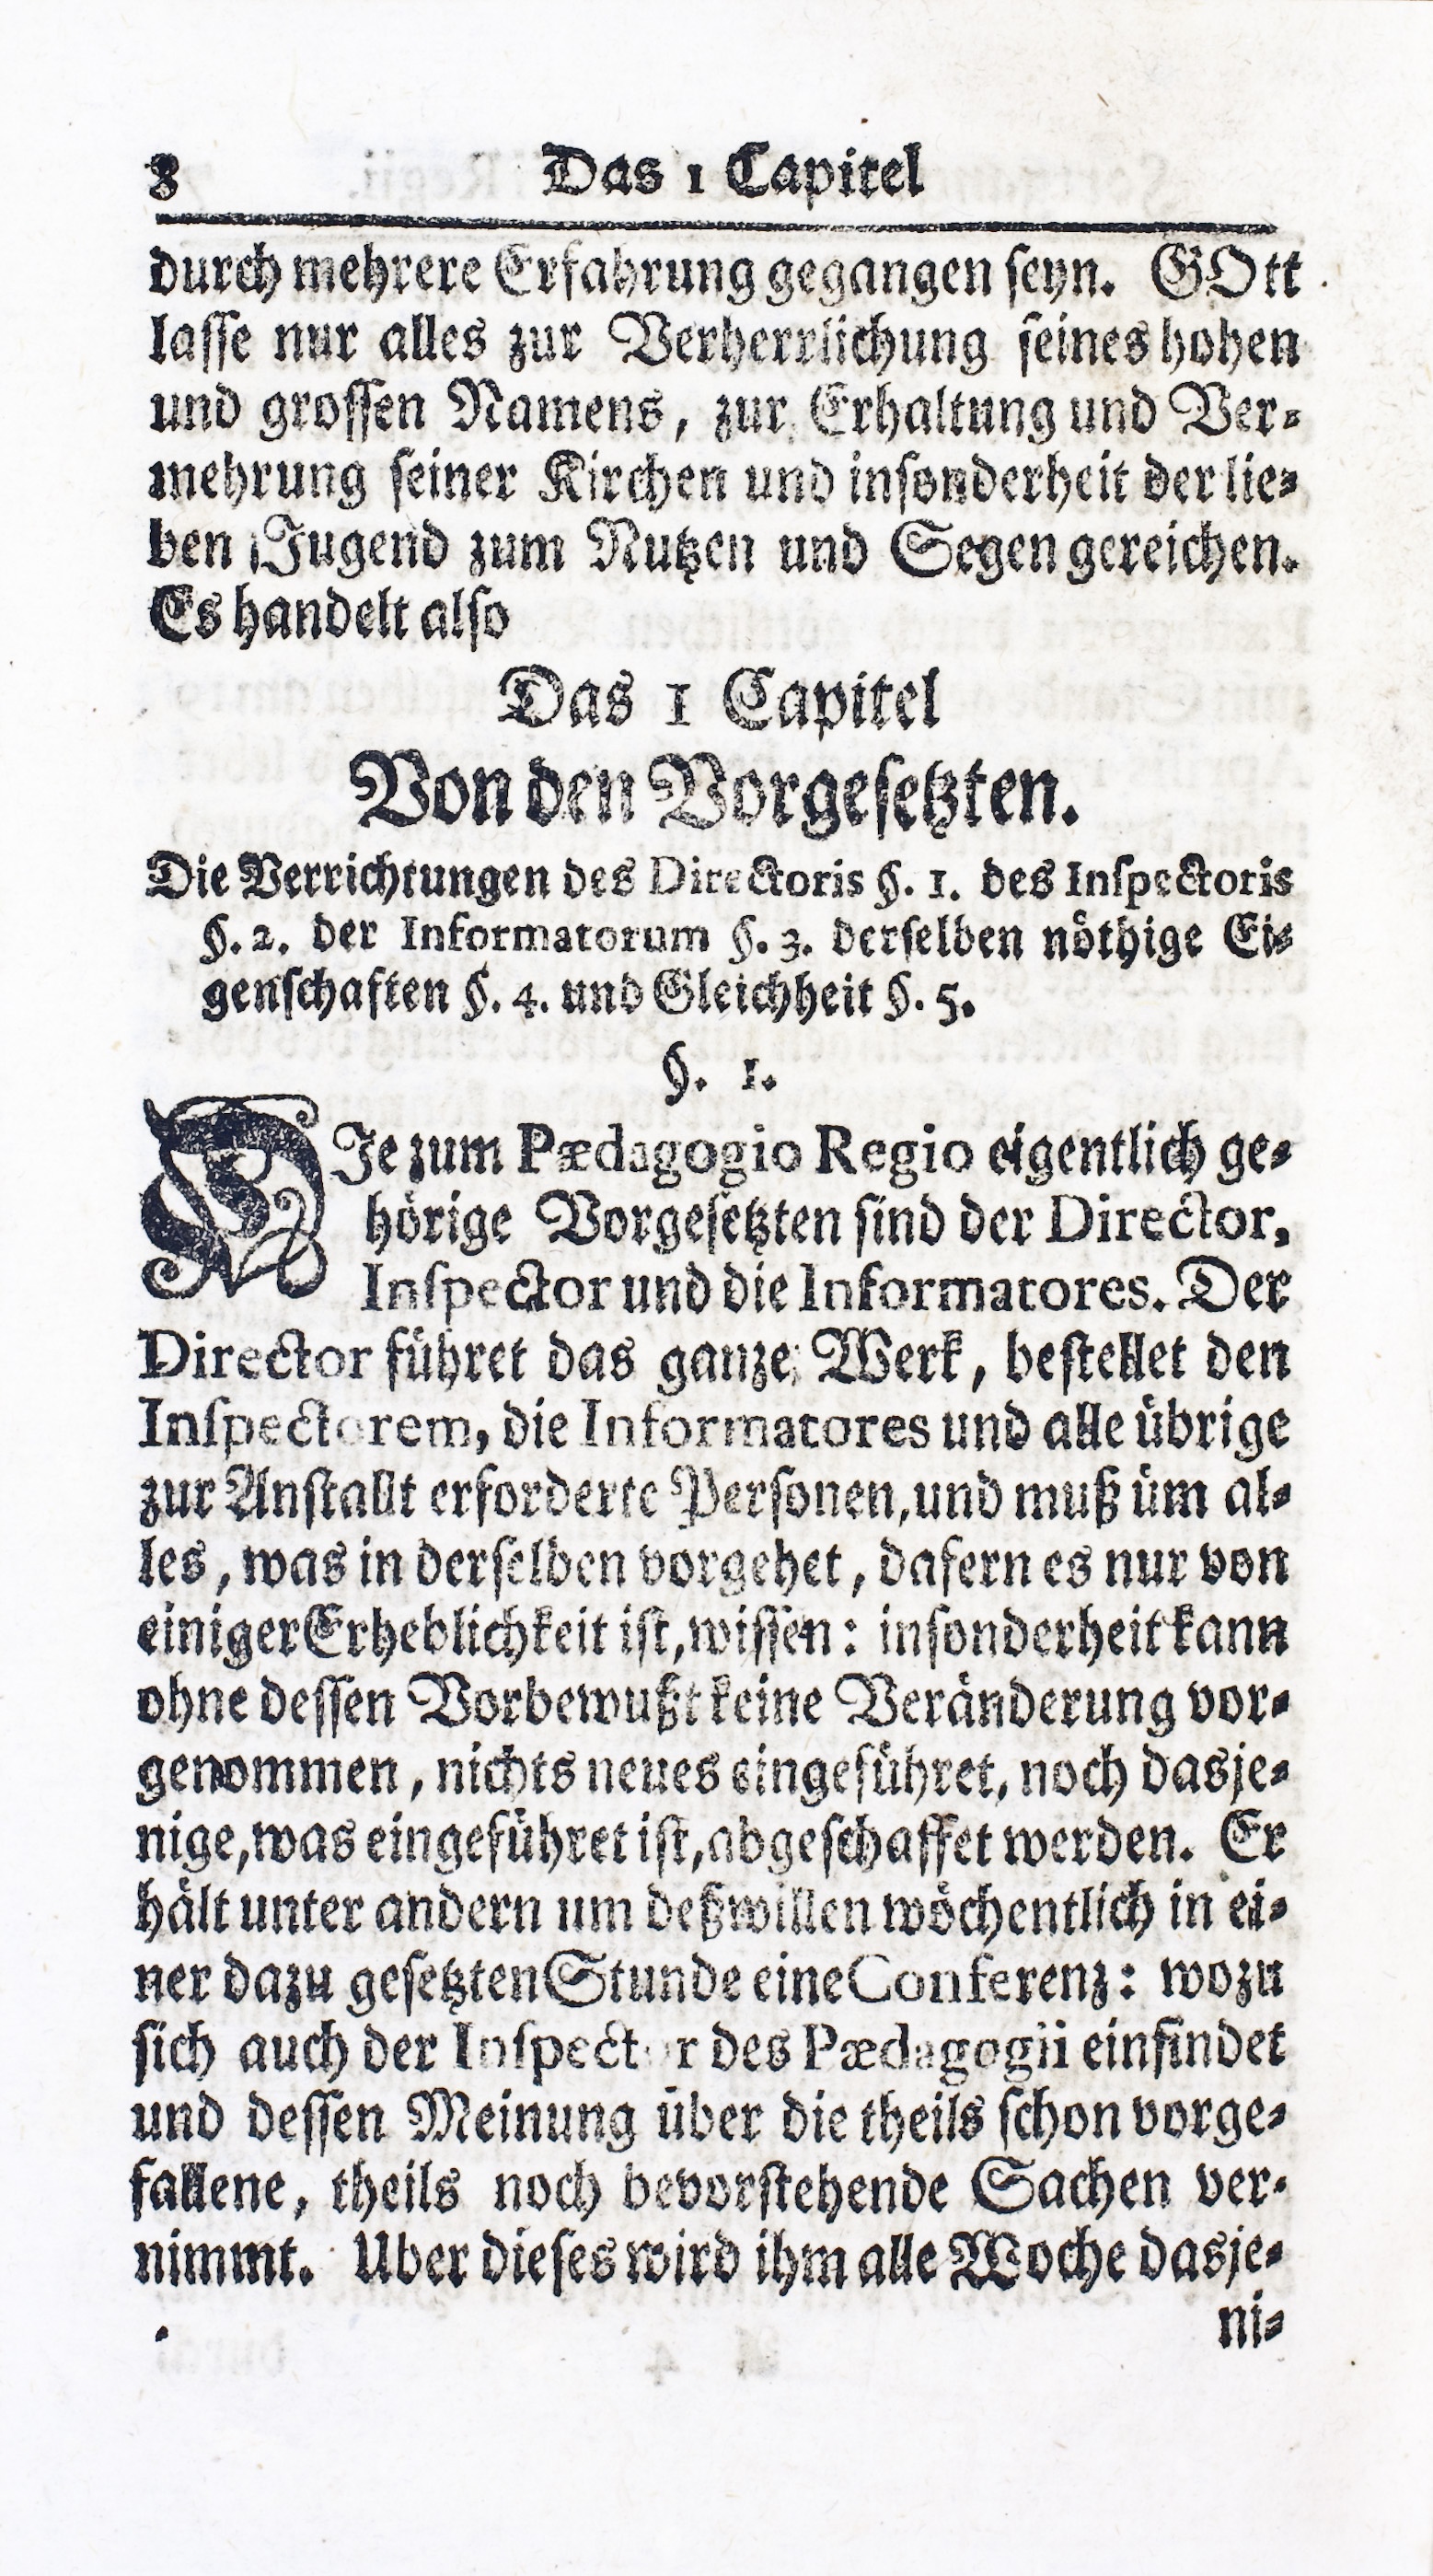 8 Das 1 Capitel
durch mehrere Erfahrung gegangen ſeyn. GOtt
laſſe nur alles zur Verherrlichung ſeines hohen
und groſſen Namens, zur Erhaltung und Ver⸗
mehrung ſeiner Kirchen und inſonderheit der lie⸗
ben Jugend zum Nutzen und Segen gereichen.
Es handelt alſo
Das 1 Capitel
Von den Vorgeſetzten.
Die Verrichtungen des Directoris §. 1. des Inſpectoris
§. 2. der Informatorum §. 3. derſelben nöthige Ei⸗
genſchaften §. 4. und Gleichheit §. 5.
§. 1.
DIe zum Pædagogio Regio eigentlich ge⸗
hörige Vorgeſetzten ſind der Director,
Inſpector und die Informatores. Der
Director führet das ganze Werk, beſtellet den
Inſpectorem, die Informatores und alle übrige
zur Anſtallt erforderte Perſonen, und muß üm al⸗
les, was in derſelben vorgehet, dafern es nur von
einiger Erheblichkeit iſt, wiſſen: inſonderheit kann
ohne deſſen Vorbewußt keine Veränderung vor⸗
genommen, nichts neues eingeführet, noch dasje⸗
nige, was eingeführet iſt, abgeſchaffet werden. Er
hält unter andern um deßwillen wöchentlich in ei⸗
ner dazu geſetzten Stunde eine Conferenz: wozu
ſich auch der Inſpector des Pædagogii einfindet
und deſſen Meinung über die theils ſchon vorge⸗
fallene, theils noch bevorſtehende Sachen ver⸗
nimmt. Uber dieſes wird ihm alle Woche dasje⸗
ni⸗